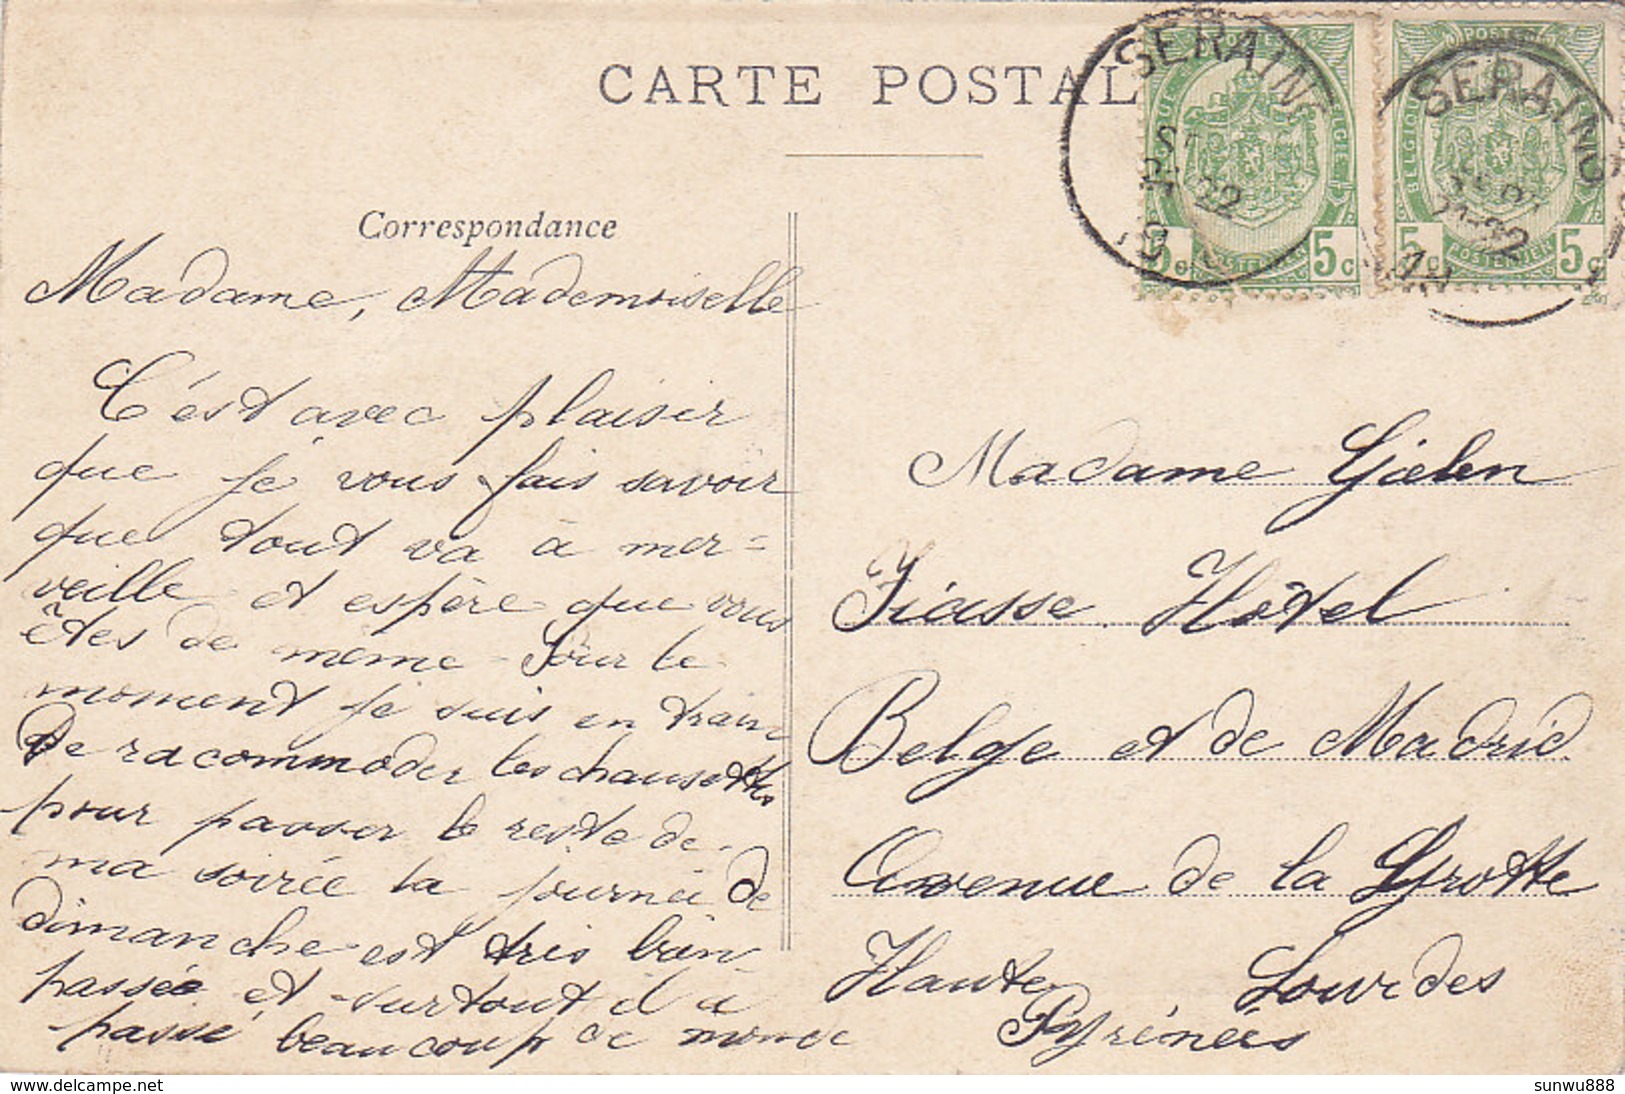 CARTE POSTAL
SERAING
SERAING
22
BELGIQUE
BELGIE
5c
5c
5c
Correspondance
Madame, Mademoiselle
C'est avec plaisir
que je vous fais savoir
que tout va à mer=
veille et espère que vous
êtes de même Pour le
moment je suis en train
de racommoder les chausettes
pour passer le reste de
ma soirée la journée de
dimanche est très bien
passée et surtout il a
passé beaucoup de monde
Madame
Hôtel
Belge et de Madrid
Avenue de la Grotte
Haute Lourdes
Pyrénées
sunwu888